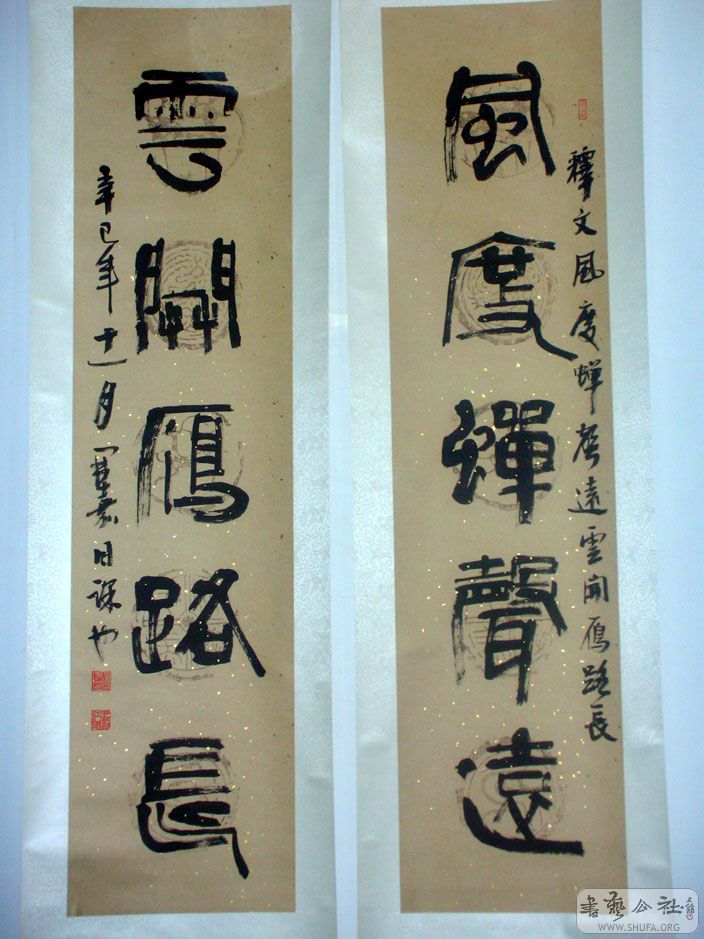 風度蟬聲遠
釋文風度蟬聲遠雲開雁路長
雲開雁路長
辛巳年十一月
日課也
書藝公社
WWW.SHUFA.ORG